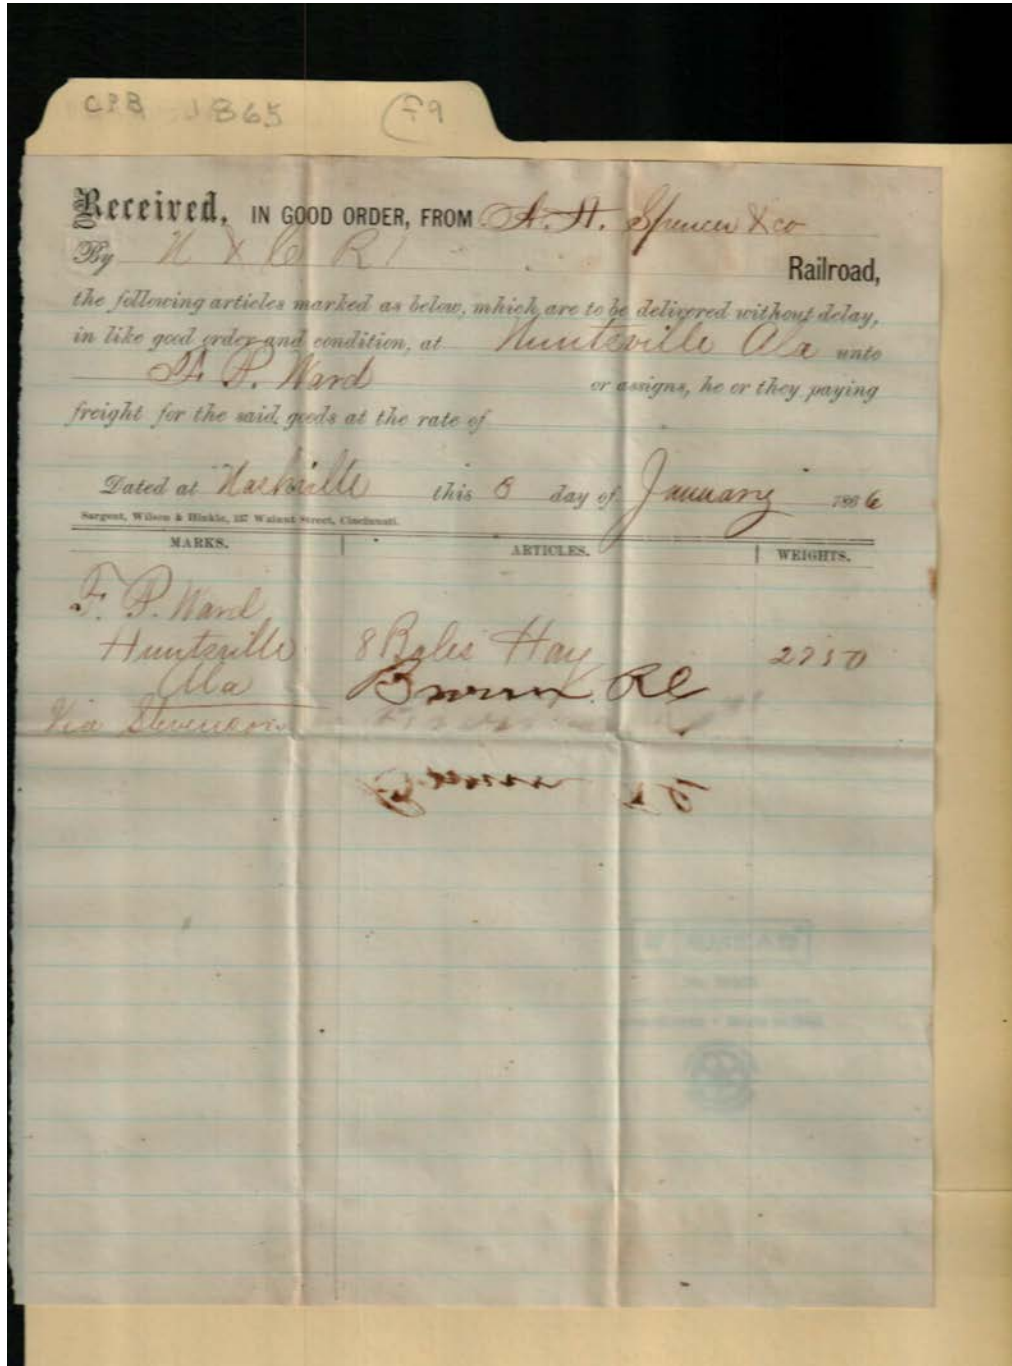 CPB 1865 F9
Received, IN GOOD ORDER, FROM A. A. Spencer & co
By N & C R
Railroad,
the following articles marked as below, which are to be delivered without delay,
in like good order and condition, at Huntsville Ala unto
F. P. Ward or assigns, he or they paying
freight for the said goods at the rate of
Dated at Nashville this 8 day of January 1866
Sargent, Wilson & Hinkle, 137 Walnut Street, Cincinnati.
MARKS. ARTICLES. WEIGHTS.
F. P. Ward
Huntsville 8 Bales Hay 2750
Ala Brown
Via Stevenson